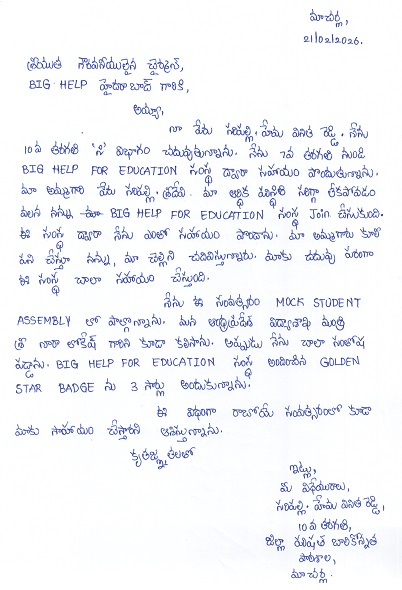 మాచర్ల,
21/02/2026.
శ్రీయుత గౌరవనీయులైన చైర్మన్,
BIG HELP హైదరాబాద్ గారికి,
అయ్యా,
నా పేరు సరిపల్లి. హేమ వినిత రెడ్డి. నేను
10వ తరగతి 'సి' విభాగం చదువుతున్నాను. నేను 7వ తరగతి నుండి
BIG HELP FOR EDUCATION సంస్థ ద్వారా సహాయం పొందుతున్నాను.
మా అమ్మగారి పేరు సరిపల్లి. శ్రీదేవి. మా ఆర్థిక పరిస్థితి సరిగ్గా లేకపోవడం
వలన నన్ను BIG HELP FOR EDUCATION సంస్థ Join చేసుకుంది.
ఈ సంస్థ ద్వారా నేను ఎంతో సహాయం పొందాను. మా అమ్మగారు కూలి
పని చేస్తూ నన్ను, మా చెల్లిని చదివిస్తున్నారు. మాకు చదువు పరంగా
ఈ సంస్థ చాలా సహాయం చేస్తుంది.
నేను ఈ సంవత్సరం MOCK STUDENT
ASSEMBLY లో పాల్గొన్నాను. మన ఆంధ్రప్రదేశ్ విద్యాశాఖ మంత్రి
శ్రీ నారా లోకేష్ గారిని కూడా కలిసాను. అప్పుడు నేను చాలా సంతోష
పడ్డాను. BIG HELP FOR EDUCATION సంస్థ అందించిన GOLDEN
STAR BADGE ను 3 సార్లు అందుకున్నాను.
ఈ విధంగా రాబోయే సంవత్సరంలో కూడా
మాకు సాహాయం చేస్తారని ఆశిస్తున్నాను.
కృతజ్ఞతలతో
ఇట్లు,
మీ విధేయురాలు,
సరిపల్లి. హేమ వినిత రెడ్డి,
10వ తరగతి,
జిల్లా పరిషత్ బాలికోన్నత
పాఠశాల,
మాచర్ల.